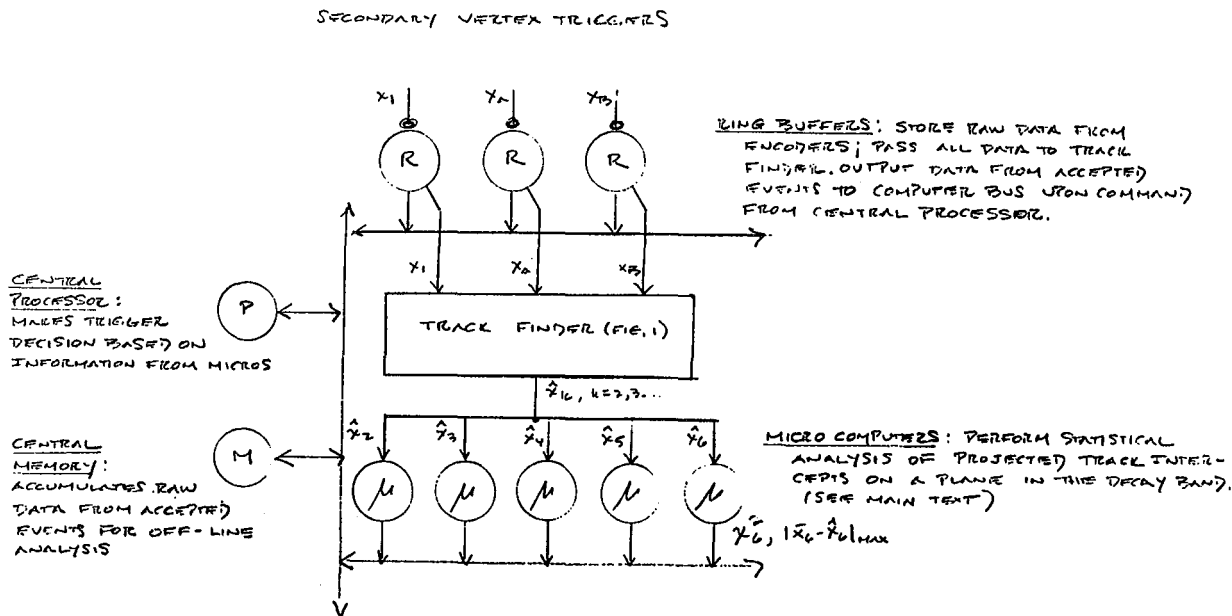 SECONDARY VERTEX TRIGGERS
x₁
x_A
x_B'
R
R
R
RING BUFFERS: STORE RAW DATA FROM
ENCODERS; PASS ALL DATA TO TRACK
FINDER. OUTPUT DATA FROM ACCEPTED
EVENTS TO COMPUTER BUS UPON COMMAND
FROM CENTRAL PROCESSOR.
x₁
x_A
x_B
CENTRAL
PROCESSOR:
MAKES TRIGGER
DECISION BASED ON
INFORMATION FROM MICROS
P
TRACK FINDER (FIG. 1)
x̂ₖ, k=2,3...
x̂₂
x̂₃
x̂₄
x̂₅
x̂₆
CENTRAL
MEMORY:
ACCUMULATES RAW
DATA FROM ACCEPTED
EVENTS FOR OFF-LINE
ANALYSIS
M
μ
μ
μ
μ
μ
MICRO COMPUTERS: PERFORM STATISTICAL
ANALYSIS OF PROJECTED TRACK INTER-
CEPTS ON A PLANE IN THE DECAY BAND.
(SEE MAIN TEXT)
x̄₆, |x̄₆-x̂₆|MAX